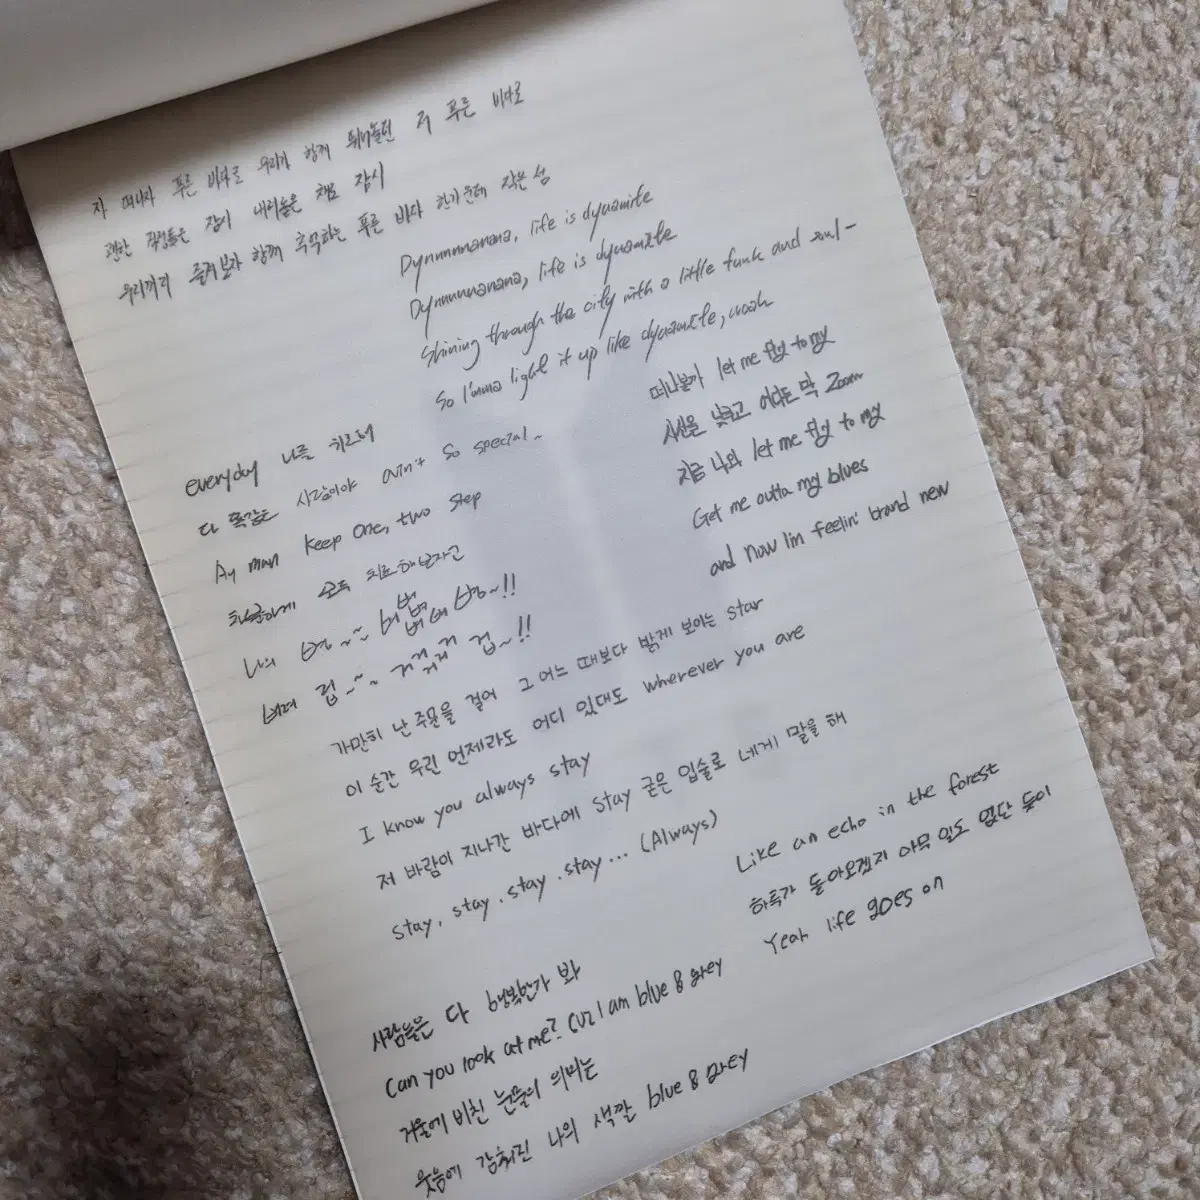 자 떠나자 푸른 바다로 우리가 함께 뛰어놀던 저 푸른 바다로
괜한 걱정들은 잠시 내려놓은 채로 잠시
우리끼리 즐겨보자 함께 추억하는 푸른 바다 한가운데 작은 섬
Dynnnnnanana, life is dynamite
Dynnnnnanana, life is dynamite
Shining through the city with a little funk and soul-
So I'mma light it up like dynamite, woah
떠나볼까 let me fly to my
시선을 낮추고 어디든 막 Zoom
지금 나와 let me fly to my
Get me outta my blues
and now I'm feelin' brand new
everyday 나를 위로해
다 똑같은 사람이야 ain't so special~
Ay man keep one, two step
차분하게 모두 치료해보자고
나의 병~~~ 버버버버 병~!!
버려 겁~~~ 거거거거 겁~!!
가만히 난 주문을 걸어 그 어느 때보다 밝게 보이는 star
이 순간 우린 언제라도 어디 있대도 wherever you are
I know you always stay
저 바람이 지나간 바다에 stay 굳은 입술로 네게 말을 해
stay, stay. stay. stay... (Always)
Like an echo in the forest
하루가 돌아오겠지 아무 일도 없단 듯이
Yeah life goes on
사람들은 다 행복한가 봐
Can you look at me? Cuz I am blue & grey
거울에 비친 눈물의 의미는
웃음에 감춰진 나의 색깔 blue & grey